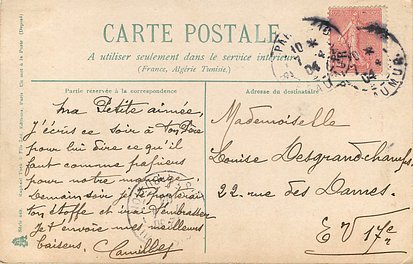 CARTE POSTALE
A utiliser seulement dans le service intérieur
(France, Algérie Tunisie).
Partie réservée à la correspondance
Adresse du destinataire
Ma Petite aimée,
J'écris ce soir à ton Père
pour lui dire ce qu'il
faut comme papiers
pour notre mariage.
Demain soir je porterai
ton étoffe et irai t'embrasser
Je t'envoie mes meilleurs
baisers. Camille
Mademoiselle
Louise Desgrandchamps
22, rue des Dames.
E V 17e